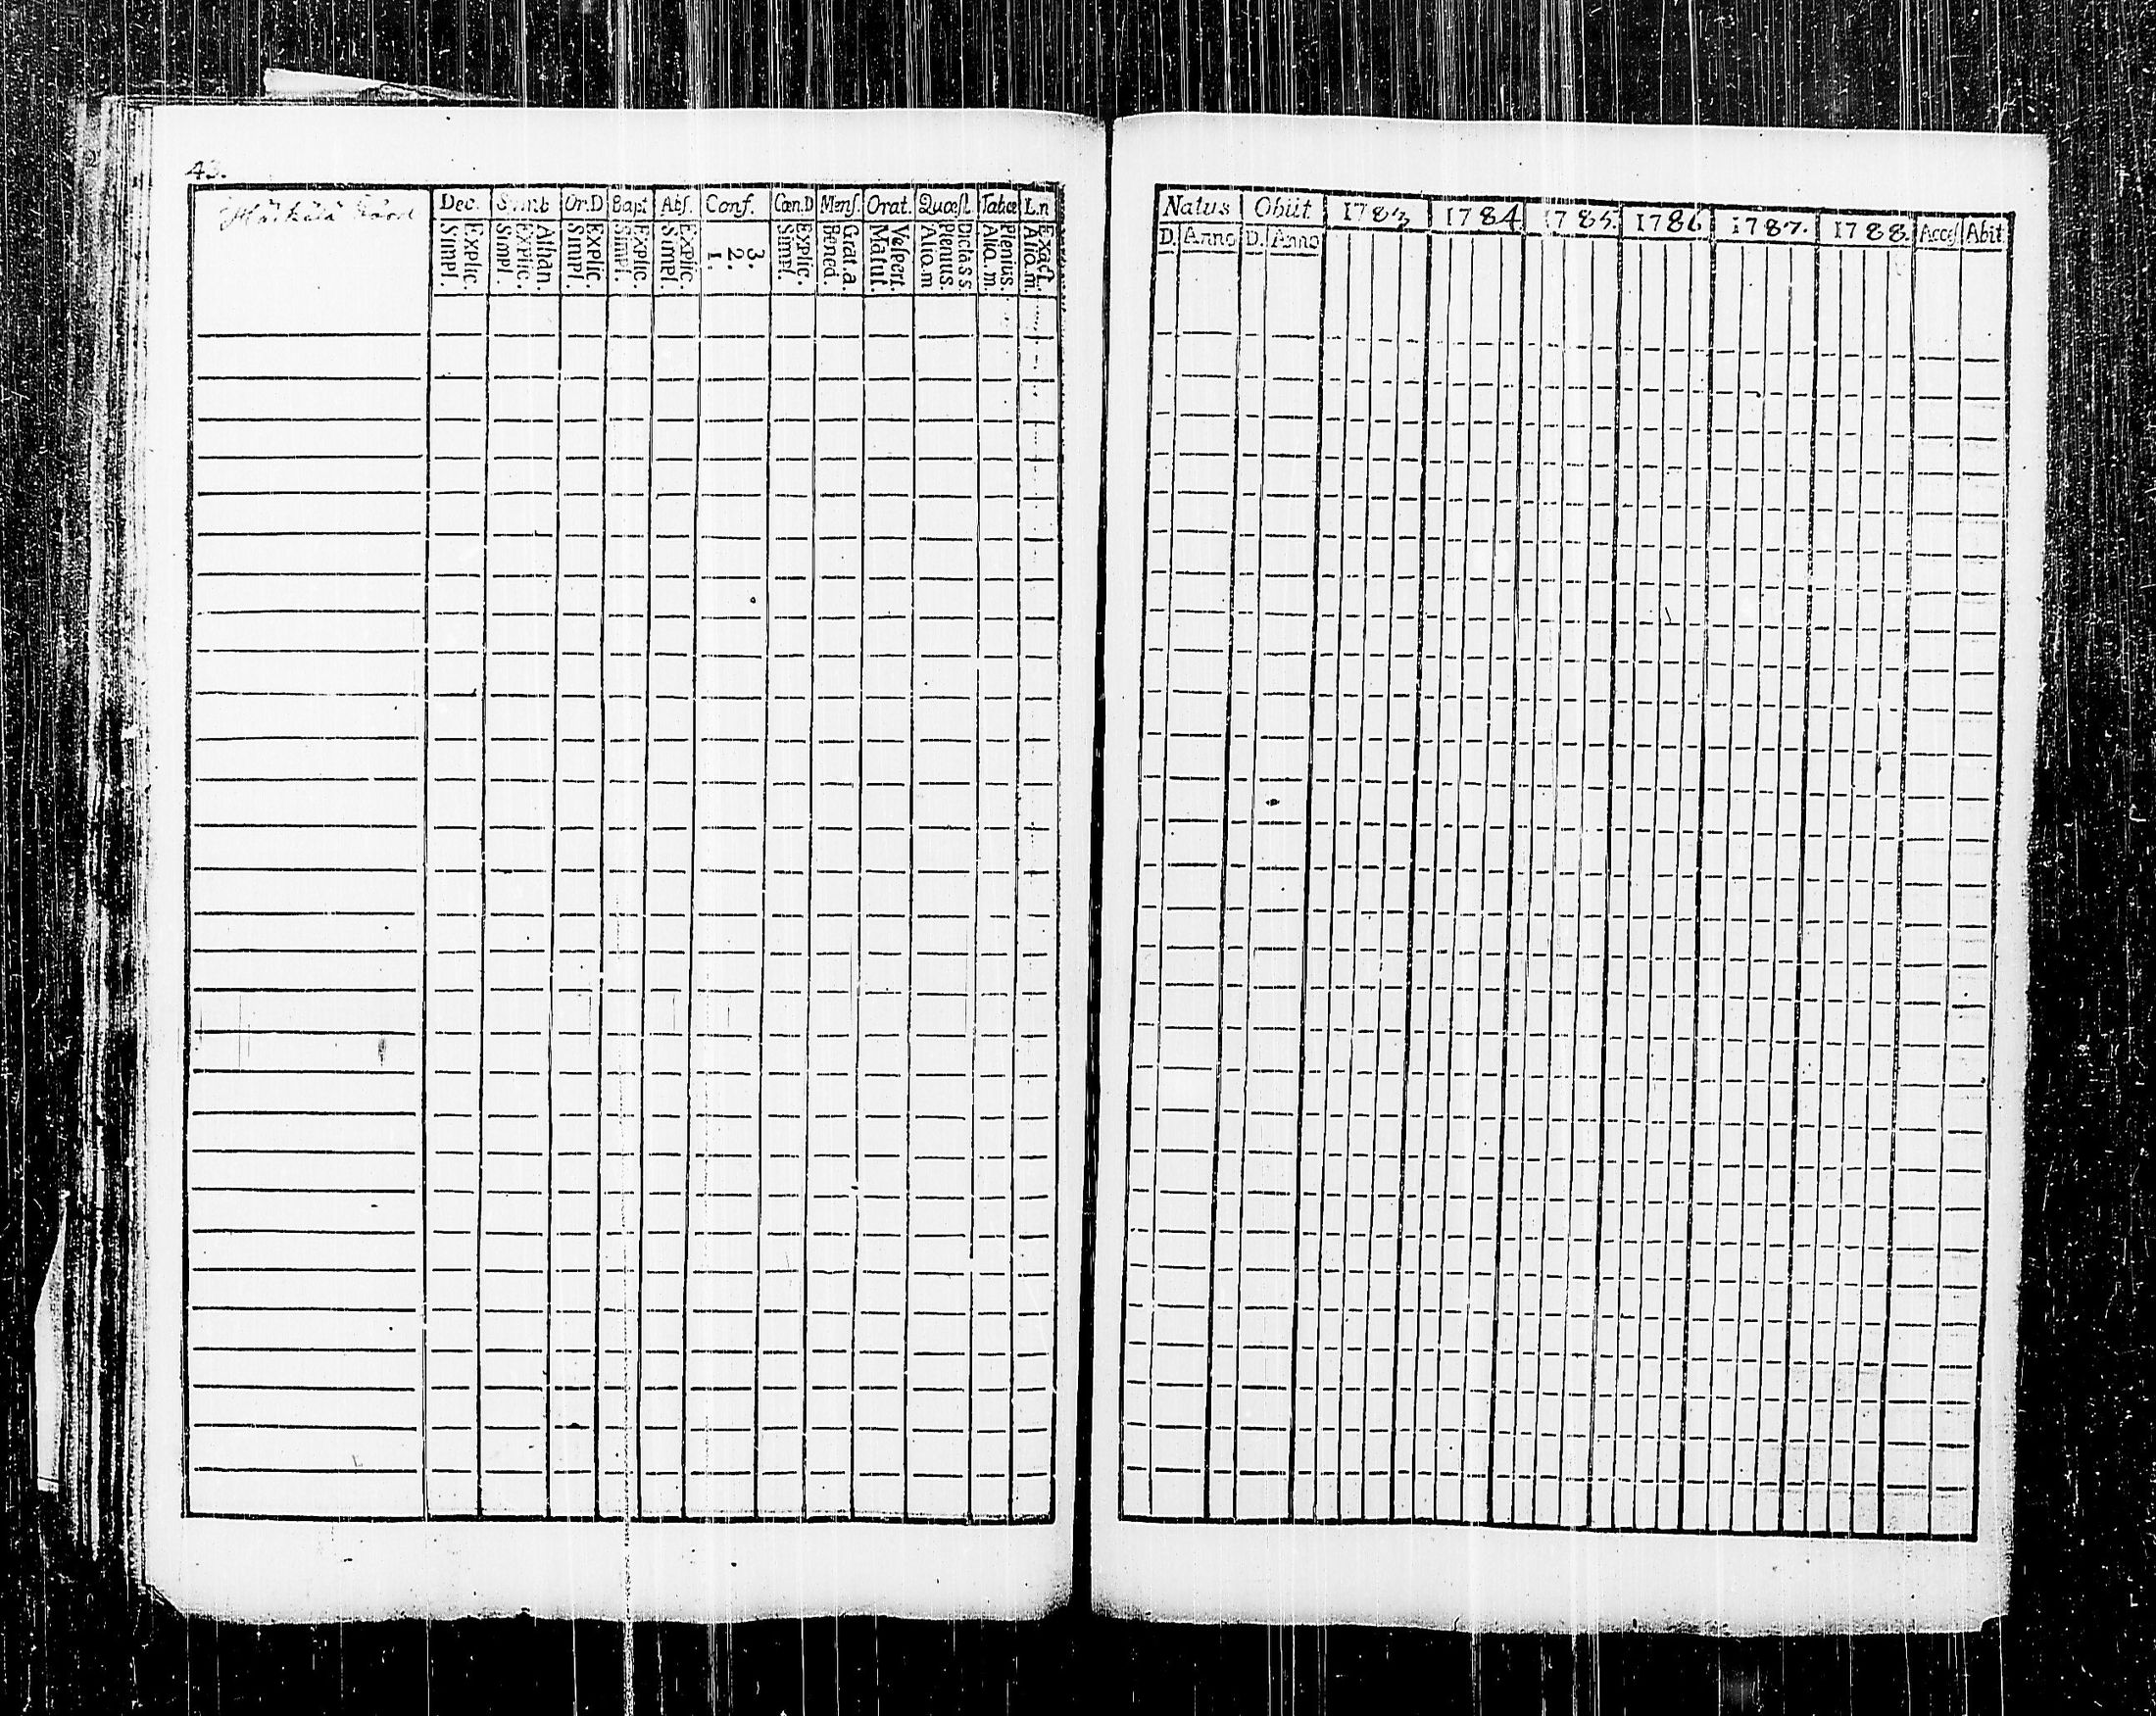 43.
Dec. Simb Or.D Bapt Abs. Conf. Cœn.D Mens. Orat. Quæst. Tabœ L.n
Explic. Simpl. Athan. Explic. Simpl. Explic. Simpl. Explic. Simpl. Explic. Simpl. 3. 2. 1. Explic. Simpl. Grat.a. Bened. Vespert. Matut. Dicta s s Plenius. Aliq.m Plenius. Aliq.m. Exact. Aliq.m.
Natus Obiit 1783 1784 1785. 1786 1787. 1788. Acces Abit
D. Anno D. Anno